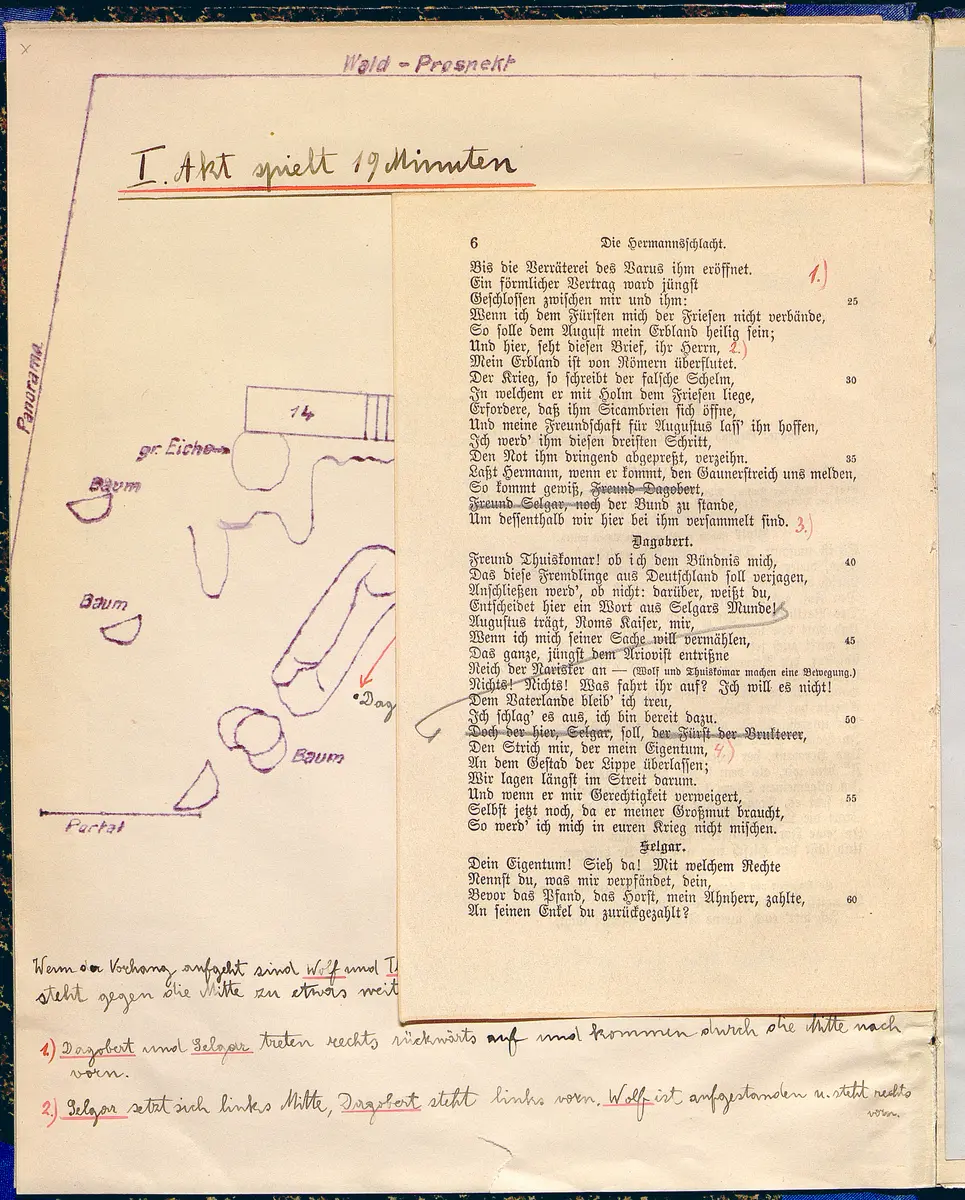 Wald - Prospekt
I. Akt spielt 19 Minuten
Panorama
14
gr. Eiche
Baum
Baum
Dag
Baum
Portal
6 Die Hermannsschlacht.
Bis die Verräterei des Varus ihm eröffnet. 1.)
Ein förmlicher Vertrag ward jüngst
Geschlossen zwischen mir und ihm: 25
Wenn ich dem Fürsten mich der Friesen nicht verbände,
So solle dem August mein Erbland heilig sein;
Und hier, seht diesen Brief, ihr Herrn, 2.)
Mein Erbland ist von Römern überflutet.
Der Krieg, so schreibt der falsche Schelm, 30
In welchem er mit Holm dem Friesen liege,
Erfordere, daß ihm Sicambrien sich öffne,
Und meine Freundschaft für Augustus lass' ihn hoffen,
Ich werd' ihm diesen dreisten Schritt,
Den Not ihm dringend abgepreßt, verzeihn. 35
Laßt Hermann, wenn er kommt, den Gaunerstreich uns melden,
So kommt gewiß, Freund Dagobert,
Freund Selgar, noch der Bund zu stande,
Um dessenthalb wir hier bei ihm versammelt sind. 3.)
Dagobert.
Freund Thuiskomar! ob ich dem Bündnis mich, 40
Das diese Fremdlinge aus Deutschland soll verjagen,
Anschließen werd', ob nicht: darüber, weißt du,
Entscheidet hier ein Wort aus Selgars Munde!
Augustus trägt, Roms Kaiser, mir,
Wenn ich mich seiner Sache will vermählen, 45
Das ganze, jüngst dem Ariovist entrißne
Reich der Narisker an — (Wolf und Thuiskomar machen eine Bewegung.)
Nichts! Nichts! Was fahrt ihr auf? Ich will es nicht!
Dem Vaterlande bleib' ich treu,
Ich schlag' es aus, ich bin bereit dazu. 50
Doch der hier, Selgar, soll, der Fürst der Brukterer,
Den Strich mir, der mein Eigentum, 4.)
An dem Gestad der Lippe überlassen;
Wir lagen längst im Streit darum.
Und wenn er mir Gerechtigkeit verweigert, 55
Selbst jetzt noch, da er meiner Großmut braucht,
So werd' ich mich in euren Krieg nicht mischen.
Selgar.
Dein Eigentum! Sieh da! Mit welchem Rechte
Nennst du, was mir verpfändet, dein,
Bevor das Pfand, das Horst, mein Ahnherr, zahlte, 60
An seinen Enkel du zurückgezahlt?
Wenn der Vorhang aufgeht sind Wolf und T
steht gegen die Mitte zu etwas weit
1) Dagobert und Selgar treten rechts rückwärts auf und kommen durch die Mitte nach
vorn.
2) Selgar setzt sich links Mitte, Dagobert steht links vorn. Wolf ist aufgestanden u. steht rechts
vorn.